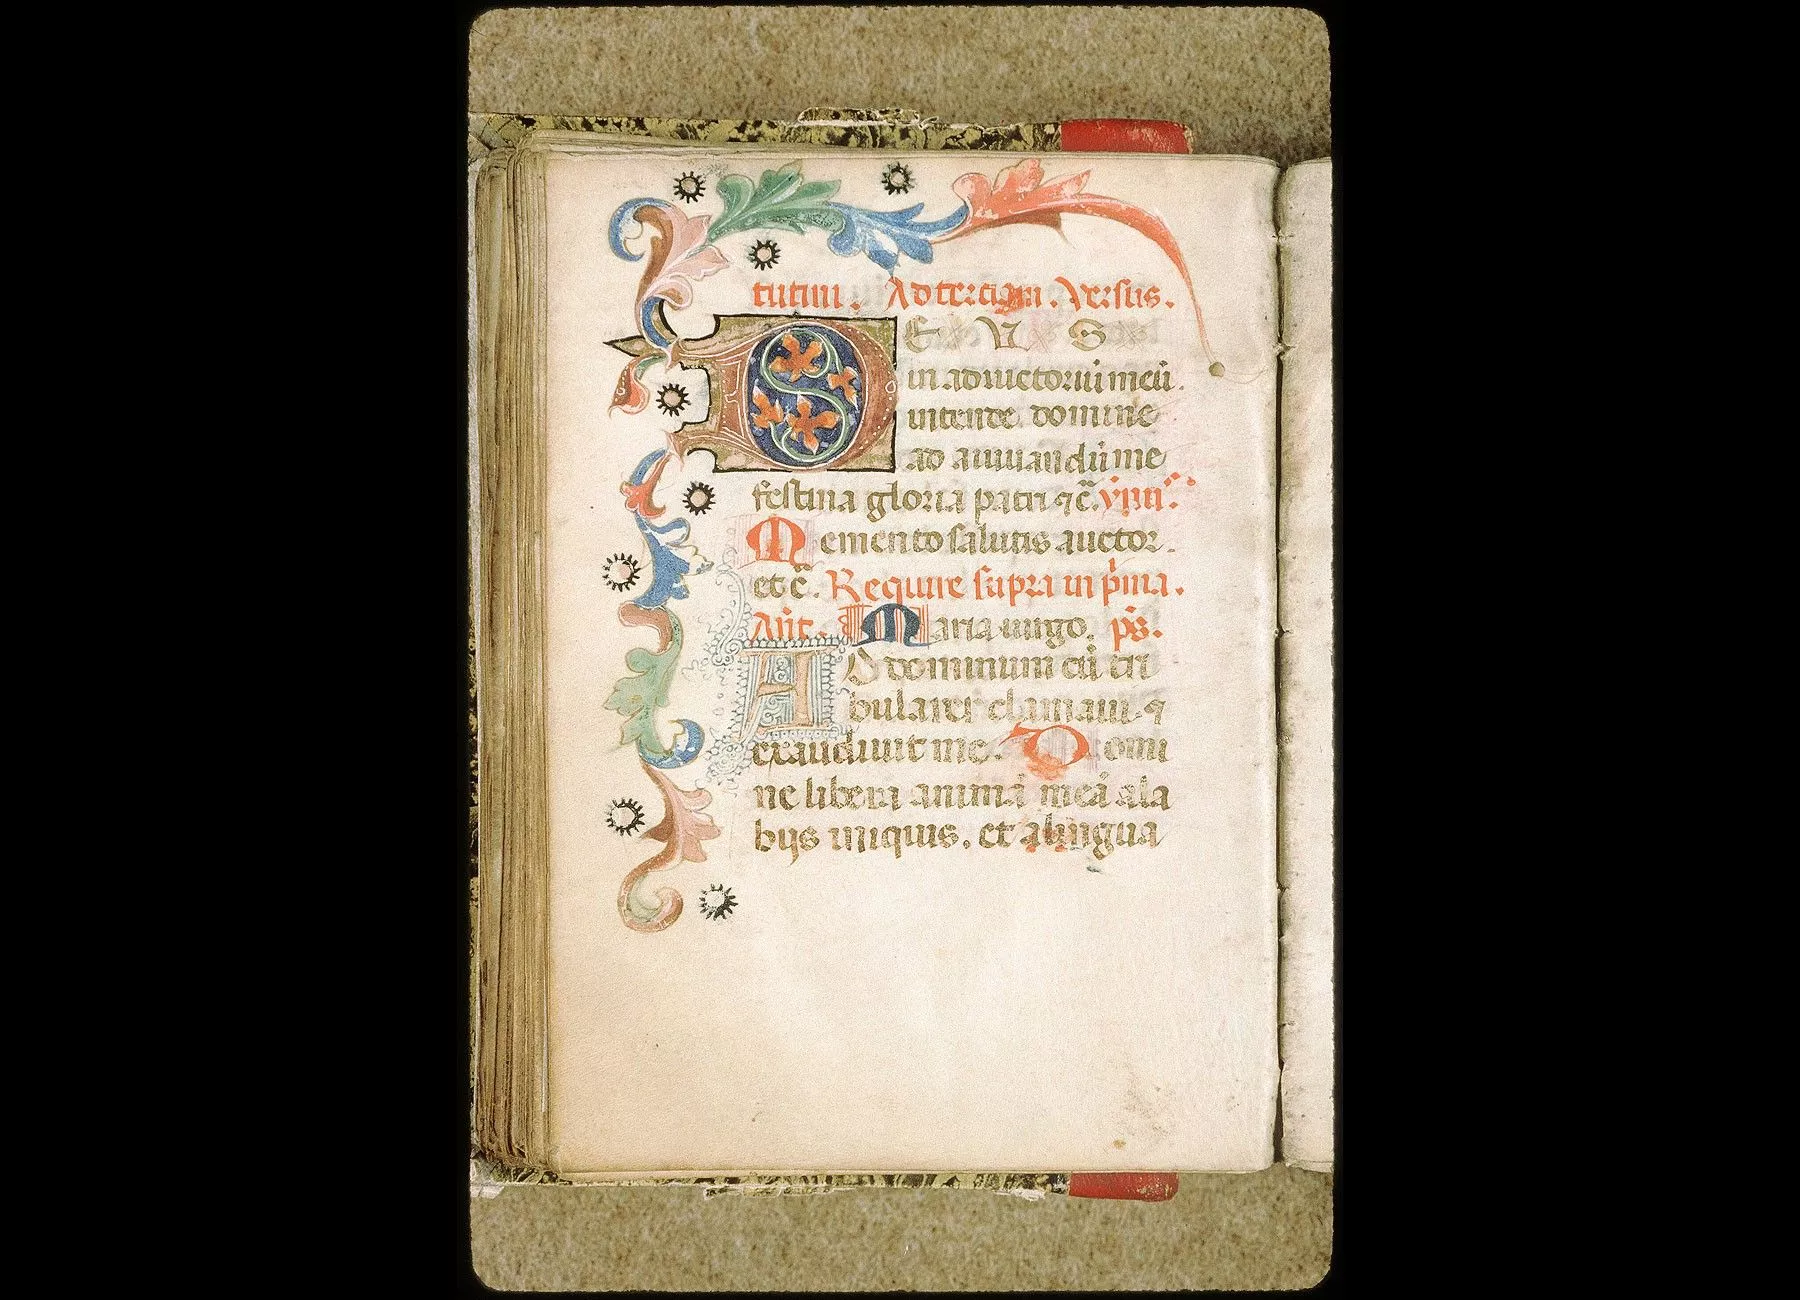 tutini. Ad terciam. Versus.
DEUS
in adiuctoriū meū.
intende. domine
ad aiuuandū me
festina gloria patri ⁊c̄. ymͥ.
Memento salutis auctor.
et c̄. Require supra in pͥma.
Añt. Maria uirgo. p̄s.
AD dominum cū tri
bularer clamaui ⁊
exaudiuit me. Domi
ne libera animā meā ala
bijs iniquis. et alingua